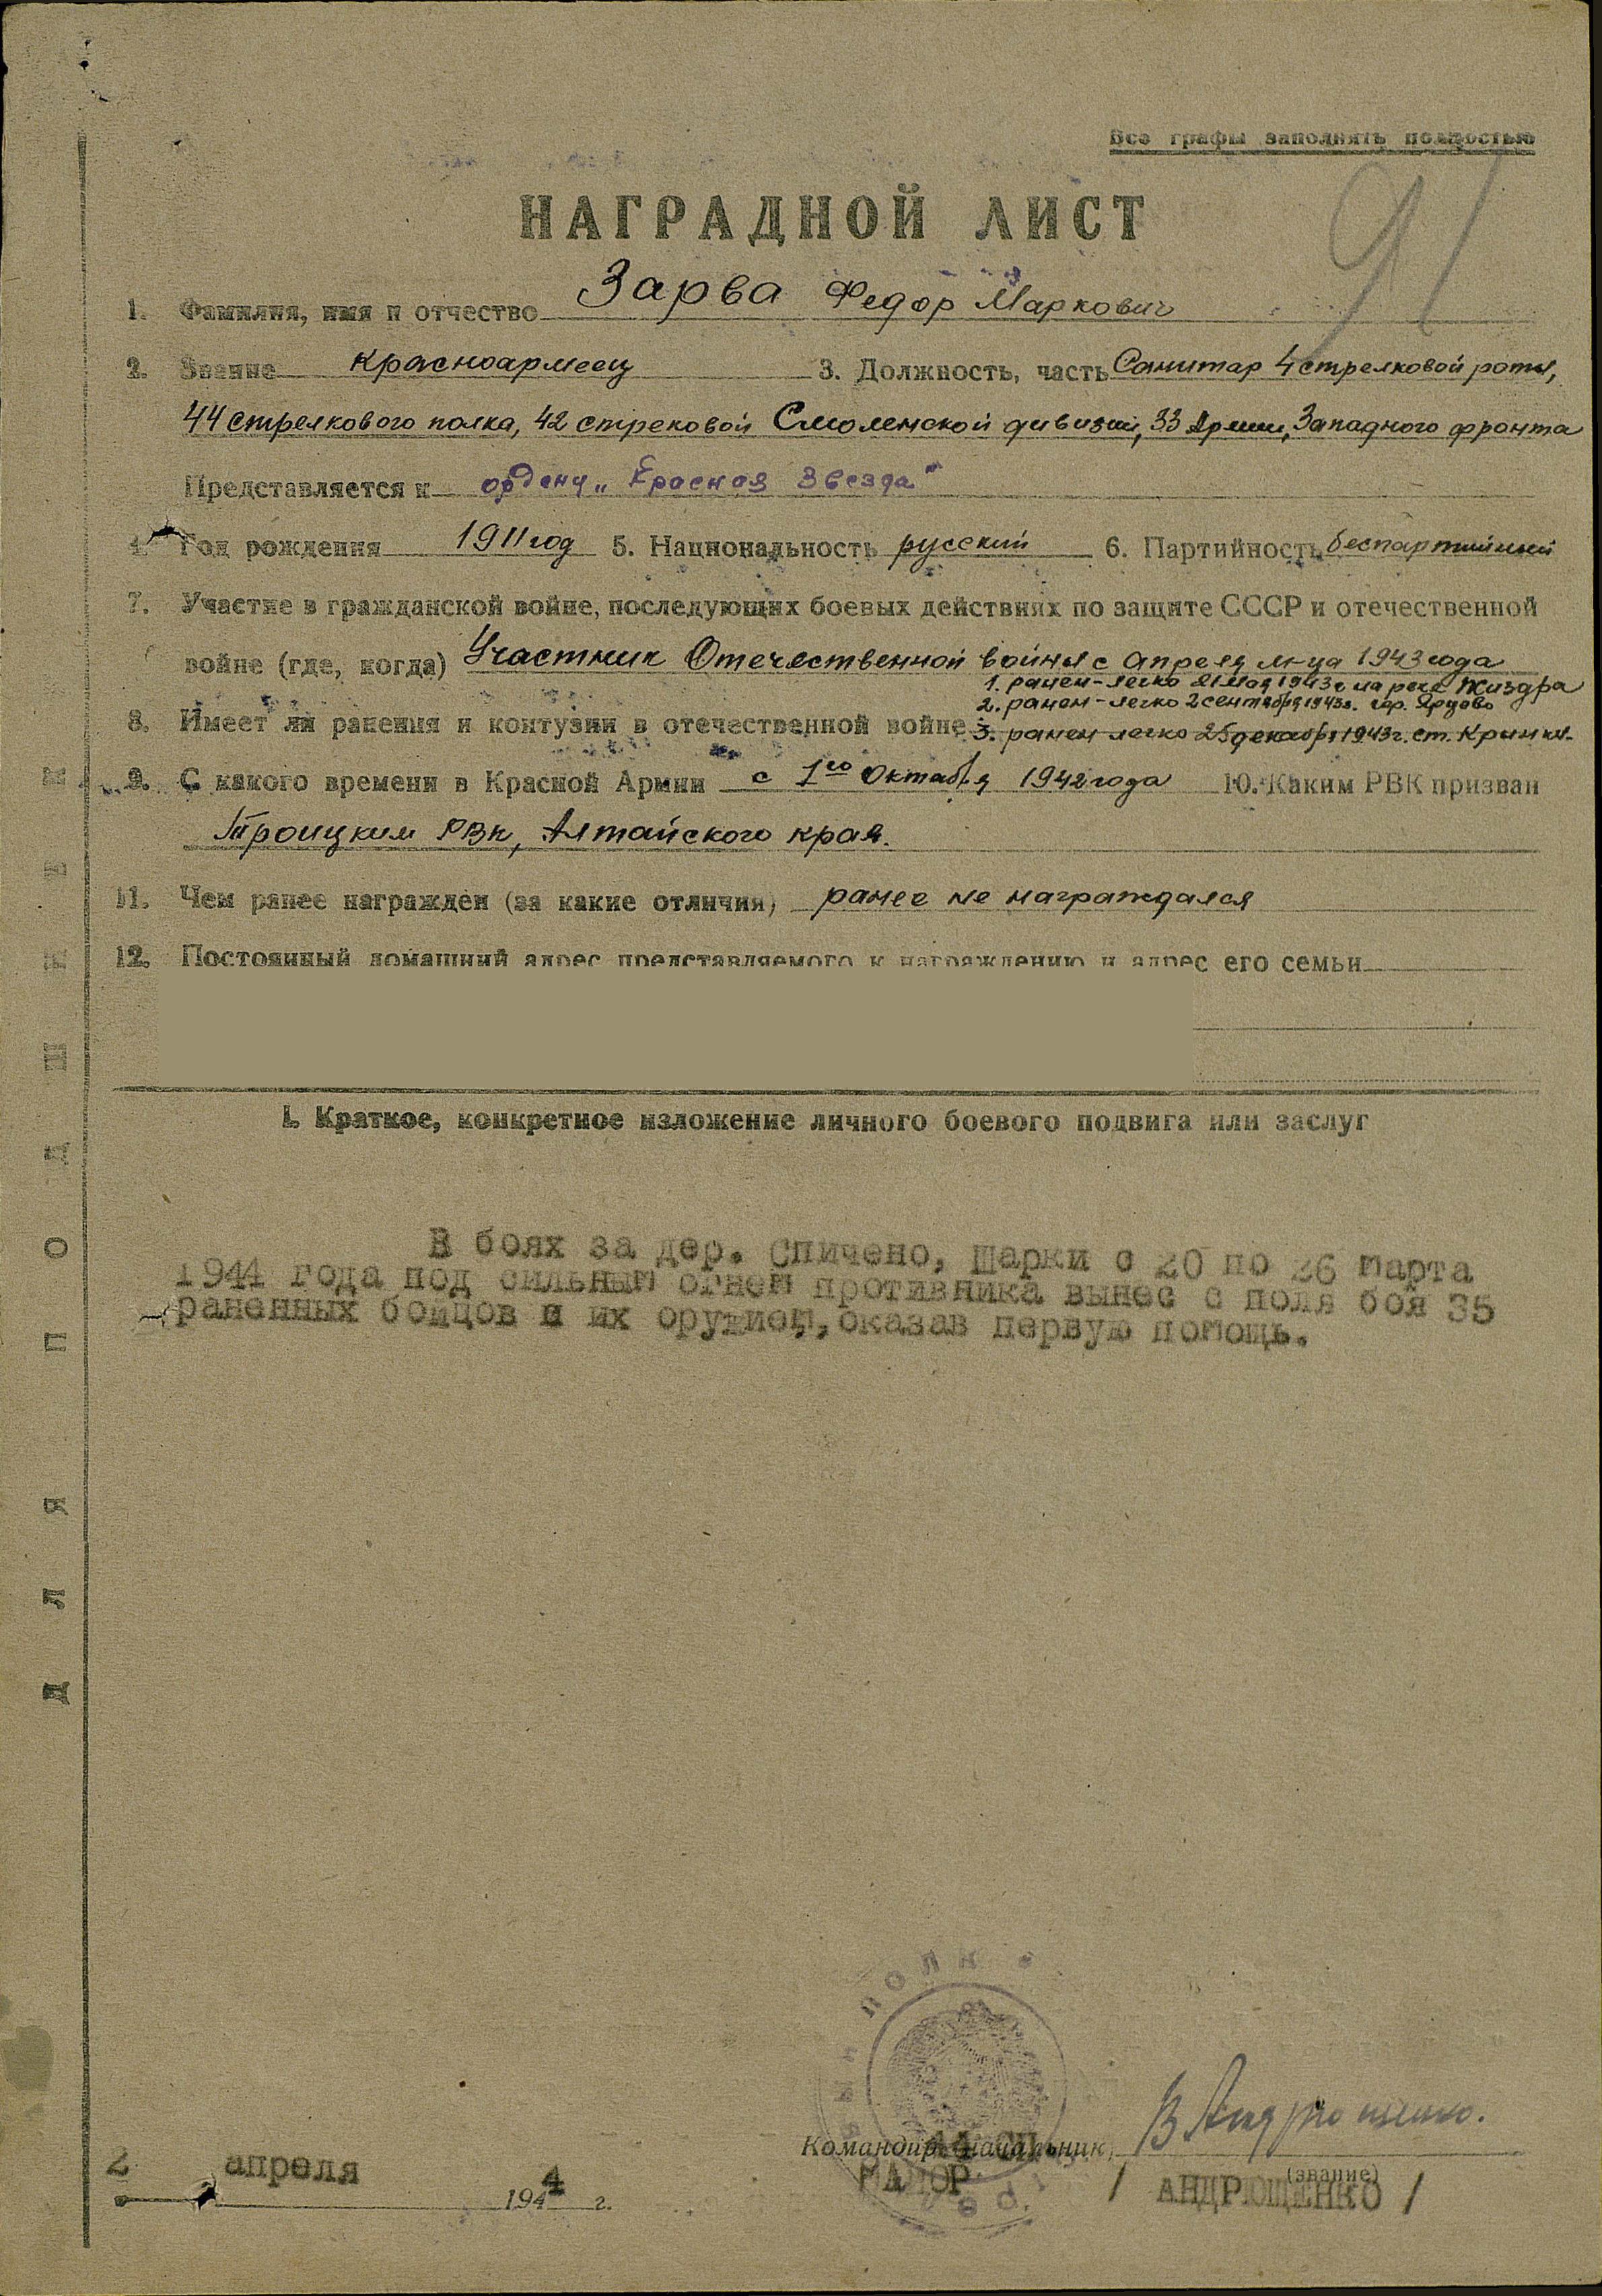 Все графы заполнять полностью
91
НАГРАДНОЙ ЛИСТ
1. Фамилия, имя и отчество Зарва Федор Маркович
2. Звание Красноармеец 3. Должность, часть Санитар 4 стрелковой роты,
44 стрелкового полка, 42 стрековой Смоленской дивизии, 33 Армии, Западного фронта
Представляется к ордену „Красная Звезда"
4. Год рождения 1911 год 5. Национальность русский 6. Партийность беспартийный
7. Участие в гражданской войне, последующих боевых действиях по защите СССР и отечественной
войне (где, когда) Участник Отечественной войны с апреля м-ца 1943 года
1. ранен-легко 21 мая 1943г на реке Жиздра
2. ранен-легко 2 сентября 1943г. гор. Ярцево
8. Имеет ли ранения и контузии в отечественной войне 3. ранен легко 25 декабря 1943г. ст. Крынки.
9. С какого времени в Красной Армии с 1го Октября 1942 года 10. Каким РВК призван
Троицким РВК, Алтайского края.
11. Чем ранее награжден (за какие отличия) ранее не награждался
12. Постоянный домашний адрес представляемого к награждению и адрес его семьи
I. Краткое, конкретное изложение личного боевого подвига или заслуг
В боях за дер. Спичено, Шарки с 20 по 26 марта
1944 года под сильным огнем противника вынес с поля боя 35
раненных бойцов и их оружием, оказав первую помощь.
ДЛЯ ПОДШИВКИ
ПОЛК
Командир (начальник) 44 СП В Андрющенко.
МАЙОР (звание)
/ АНДРЮЩЕНКО /
2 апреля 1944 г.